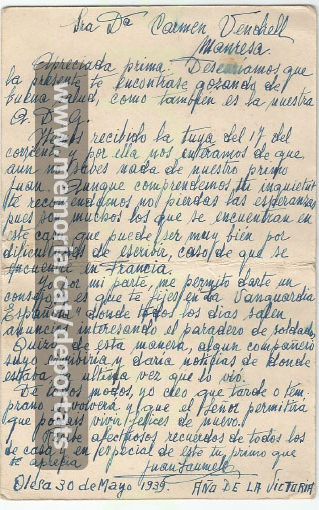 Sra Dª Carmen Venchell
Manresa.
Apreciada prima: Desearíamos que
la presente te encontrase gozando de
buena salud, como tambien es la nuestra
G. D. G.
Hemos recibido la tuya del 17 del
corriente y por ella nos enteramos de que
aun no sabes nada de nuestro primo
Juan. Aunque comprendemos tu inquietud
te recomendamos no pierdas las esperanzas
pues son muchos los que se encuentran en
este caso, que puede ser muy bién por
dificultades de escribir, caso de que se
encuentre en Francia.
Yo por mi parte, me permito darte un
consejo, es que te fijes en "La Vanguardia
Española" donde todos los dias salen
anuncios interesando el paradero de soldados
Quizá de esta manera, algun compañero
suyo escribiria y daria noticias de donde
estaba, la ultima vez que lo vió.
De todos modos, yo creo que tarde o tem
prano volverá y que el Señor permitirá
que podais vivir felices de nuevo.
Recibe afectuosos recuerdos de todos los
de casa y en especial de este tu primo que
te aprecia
Juan
Olesa 30 de Mayo 1939. AÑO DE LA VICTORIA
www.memorial.cat/deportats